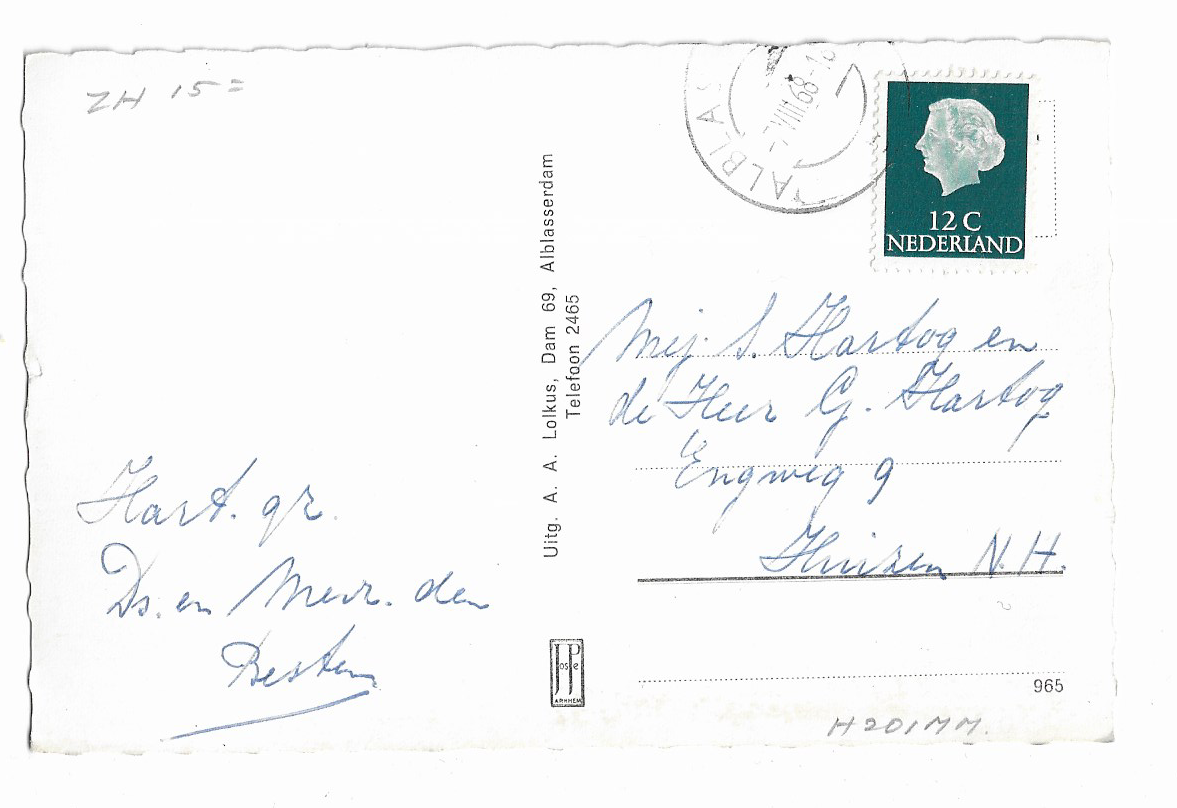 ZH 15=
ALBLAS
-7.VIII.68-1
12 C
NEDERLAND
Uitg. A. A. Lolkus, Dam 69, Alblasserdam
Telefoon 2465
Mej. S. Hartog en
de Heer G. Hartog
Engweg 9
Huizen N.H.
Hart. gr.
Ds. en Mevr. den
Besten
JosPe
ARNHEM
965
H201MM.